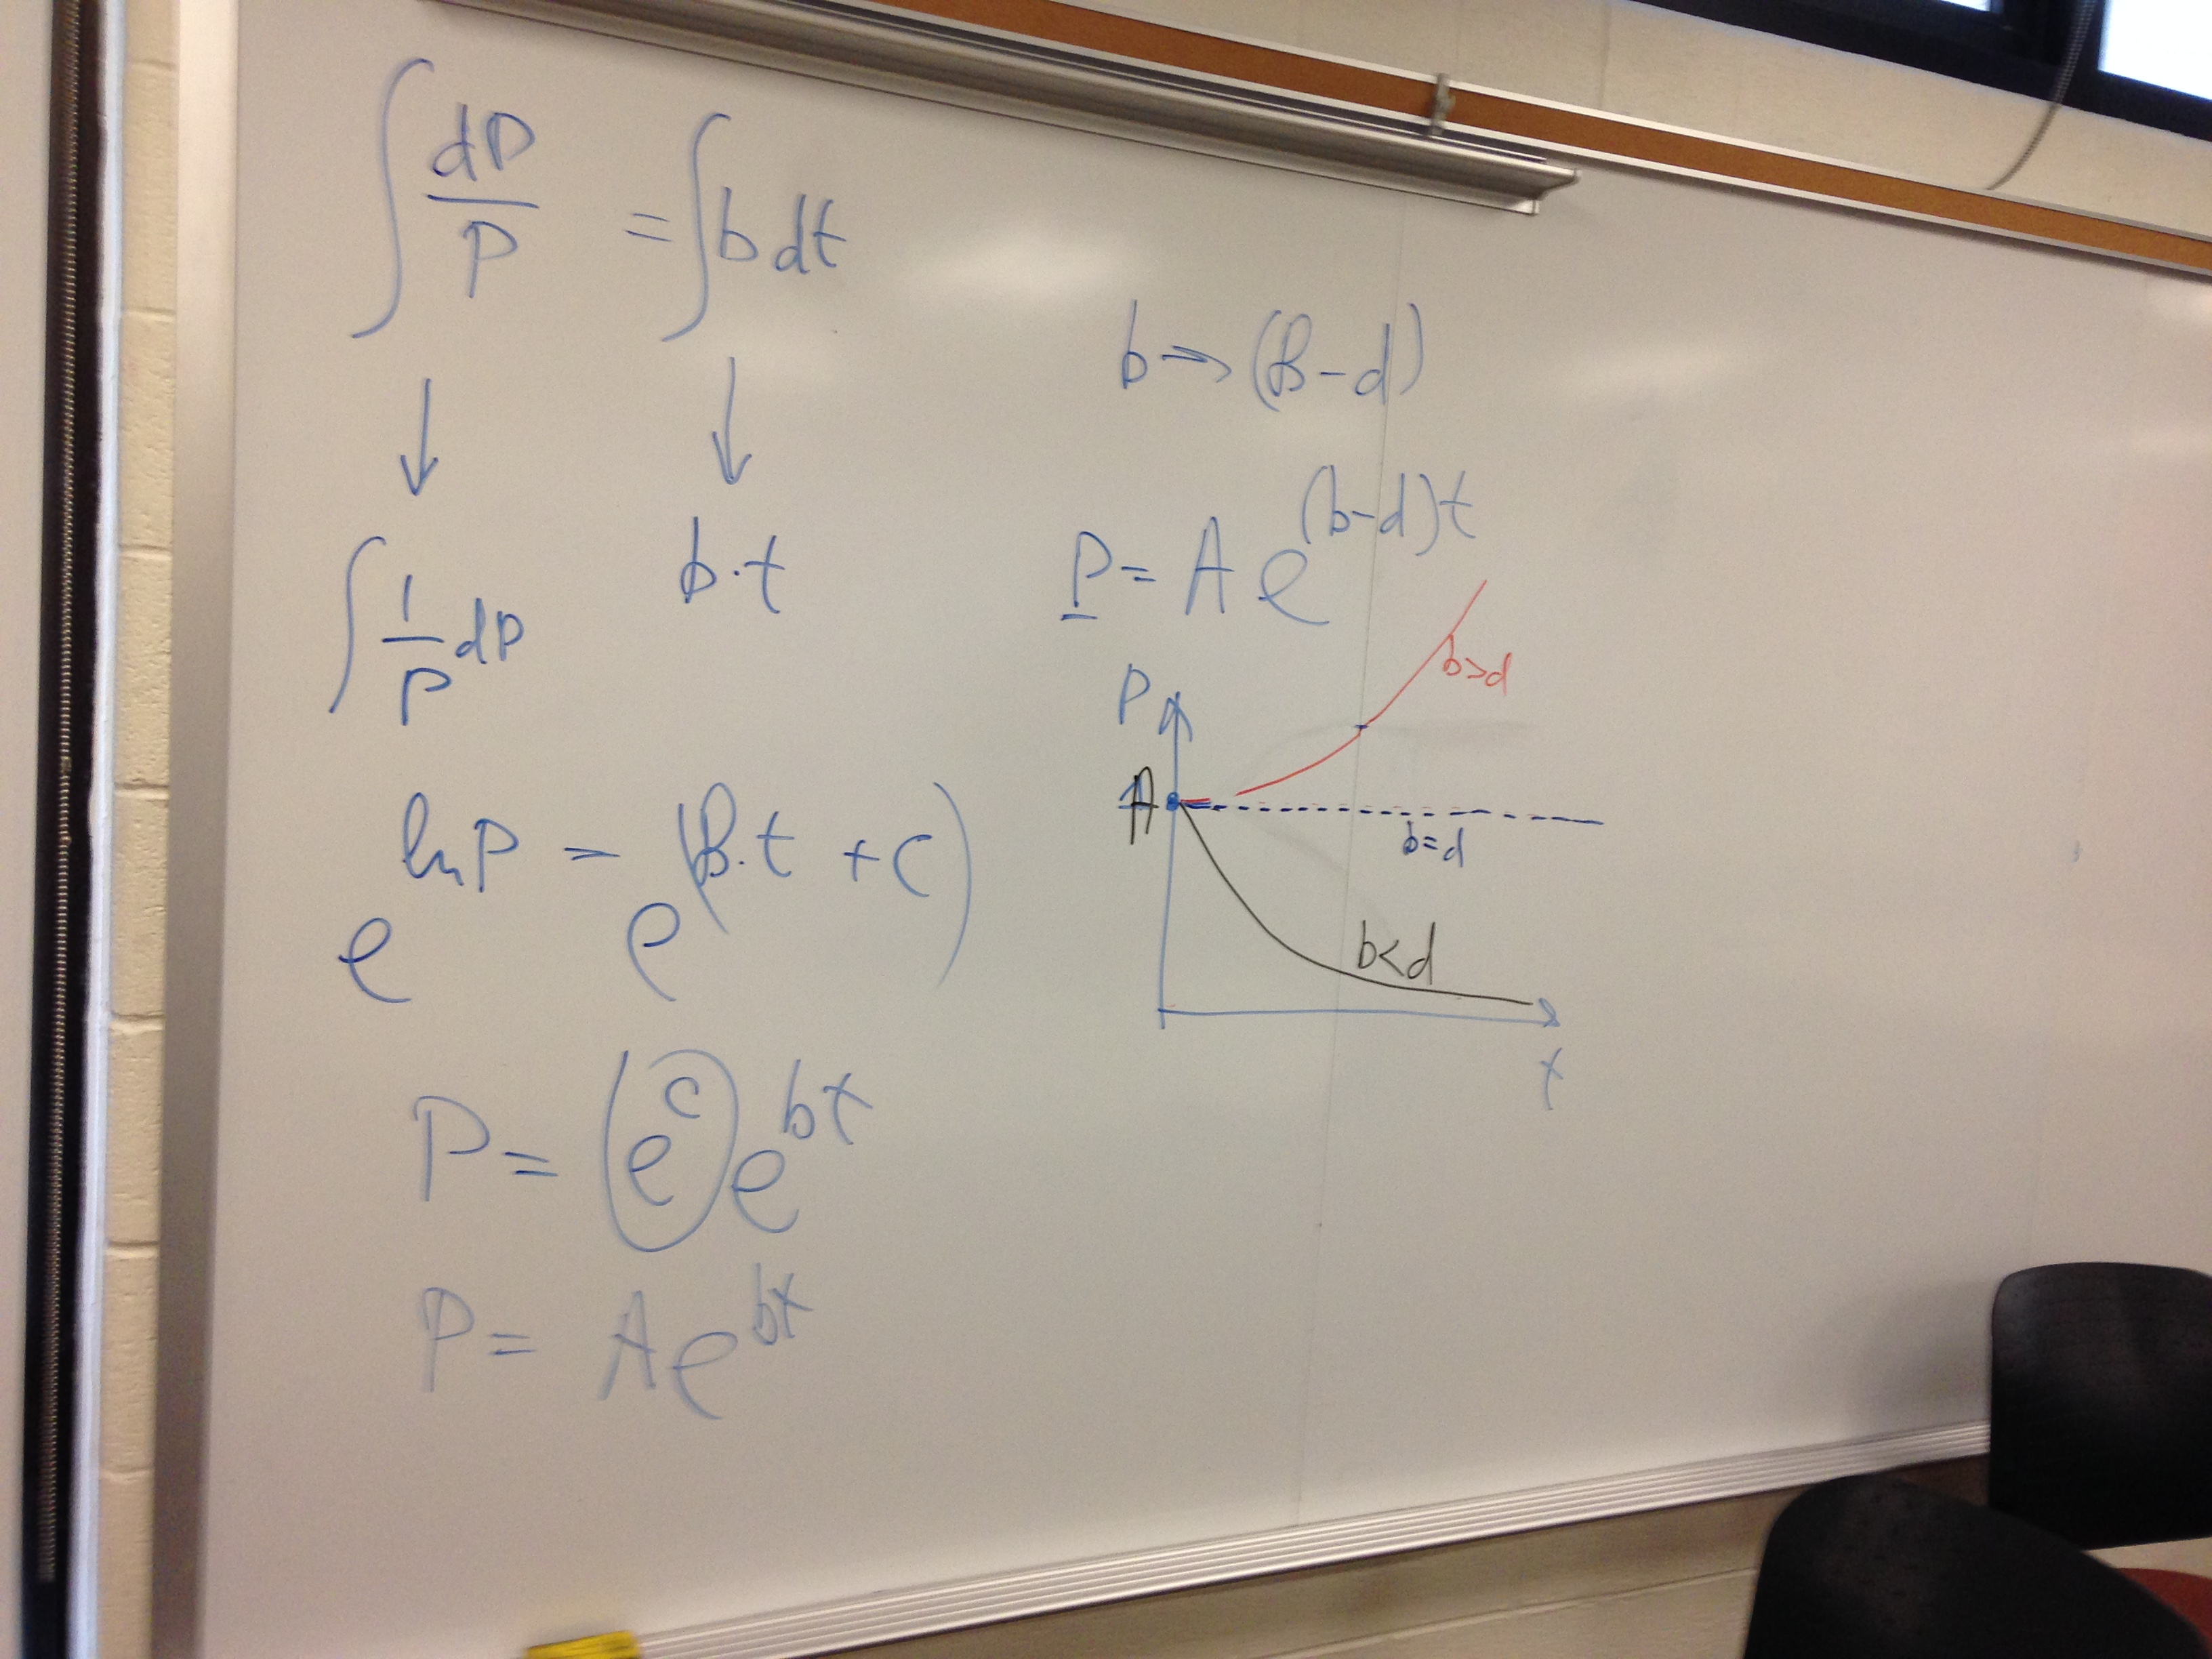 ∫ dP/P = ∫ b dt
↓ ↓
∫ 1/P dP b·t
e^(ln P) = e^(b·t + c)
P = (e^c) e^(bt)
P = A e^(bt)
b → (b-d)
P = A e^((b-d)t)
P
b>d
A
b=d
b<d
t